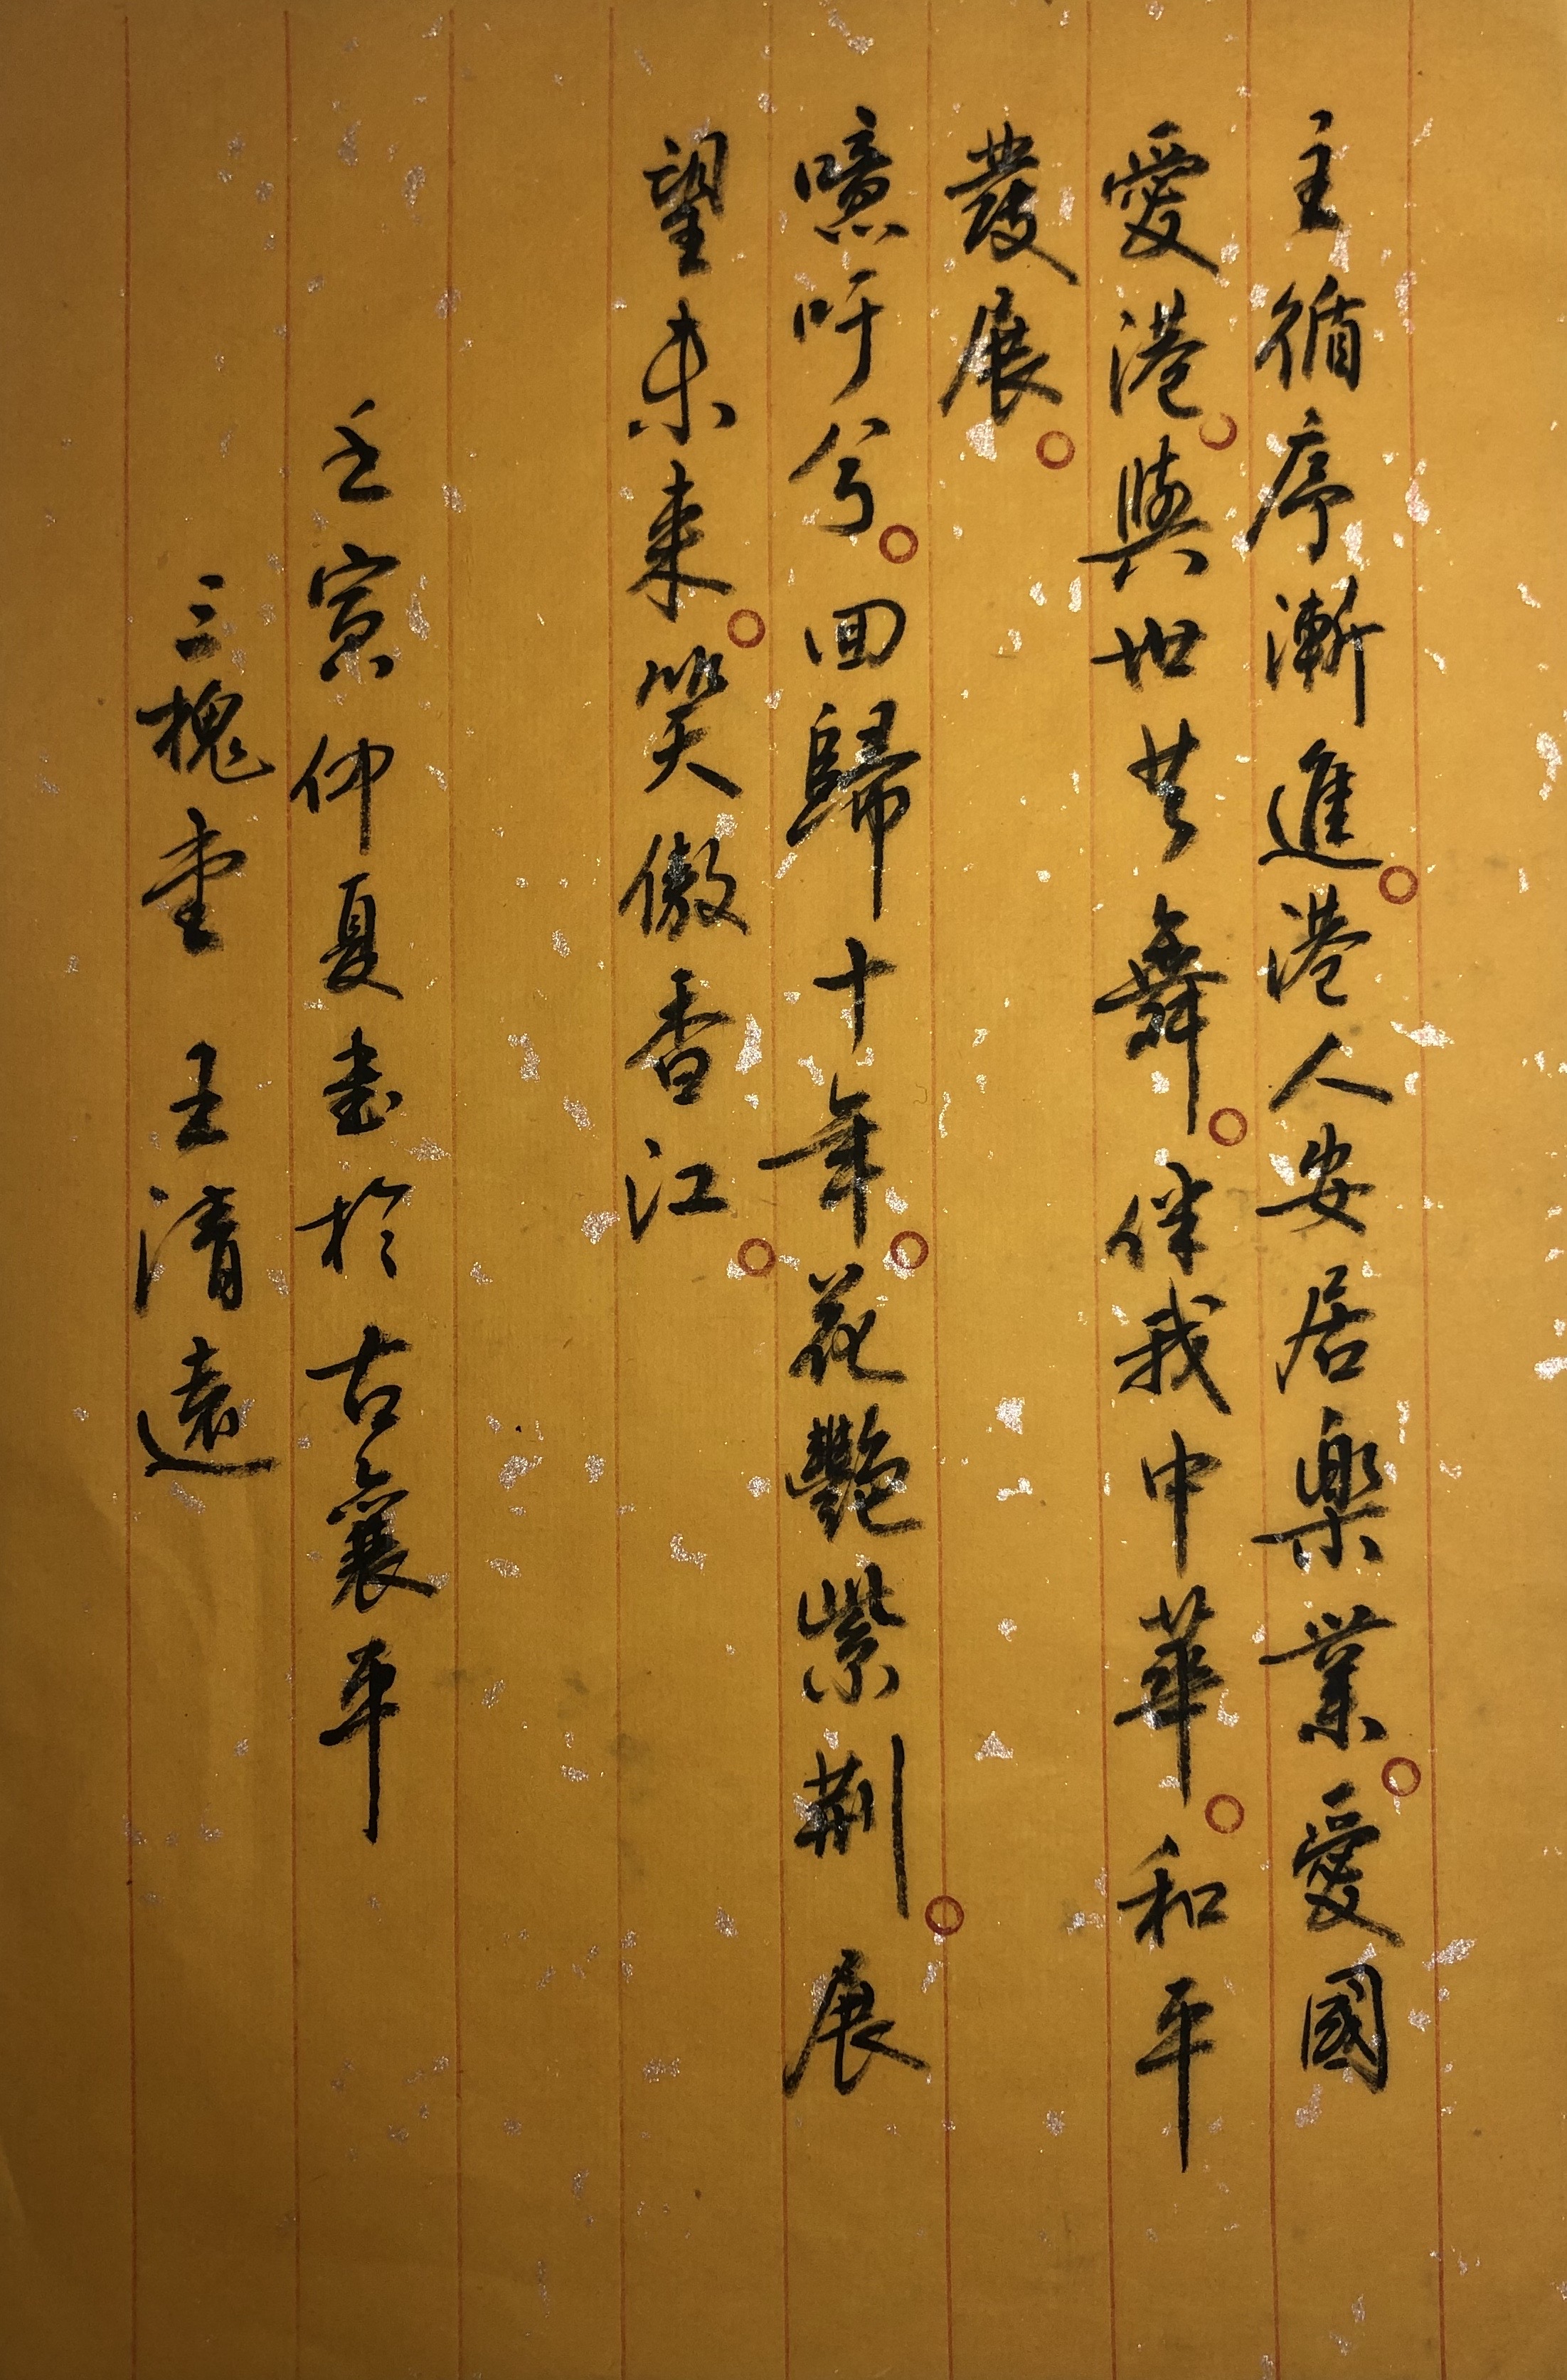 主循序漸進。港人安居樂業。愛國
愛港。與世共舞。伴我中華。和平
發展。
噫吁兮。回歸十年。花艷紫荆。展
望未来。笑傲香江。
壬寅仲夏書於古襄平
三槐堂 王清遠